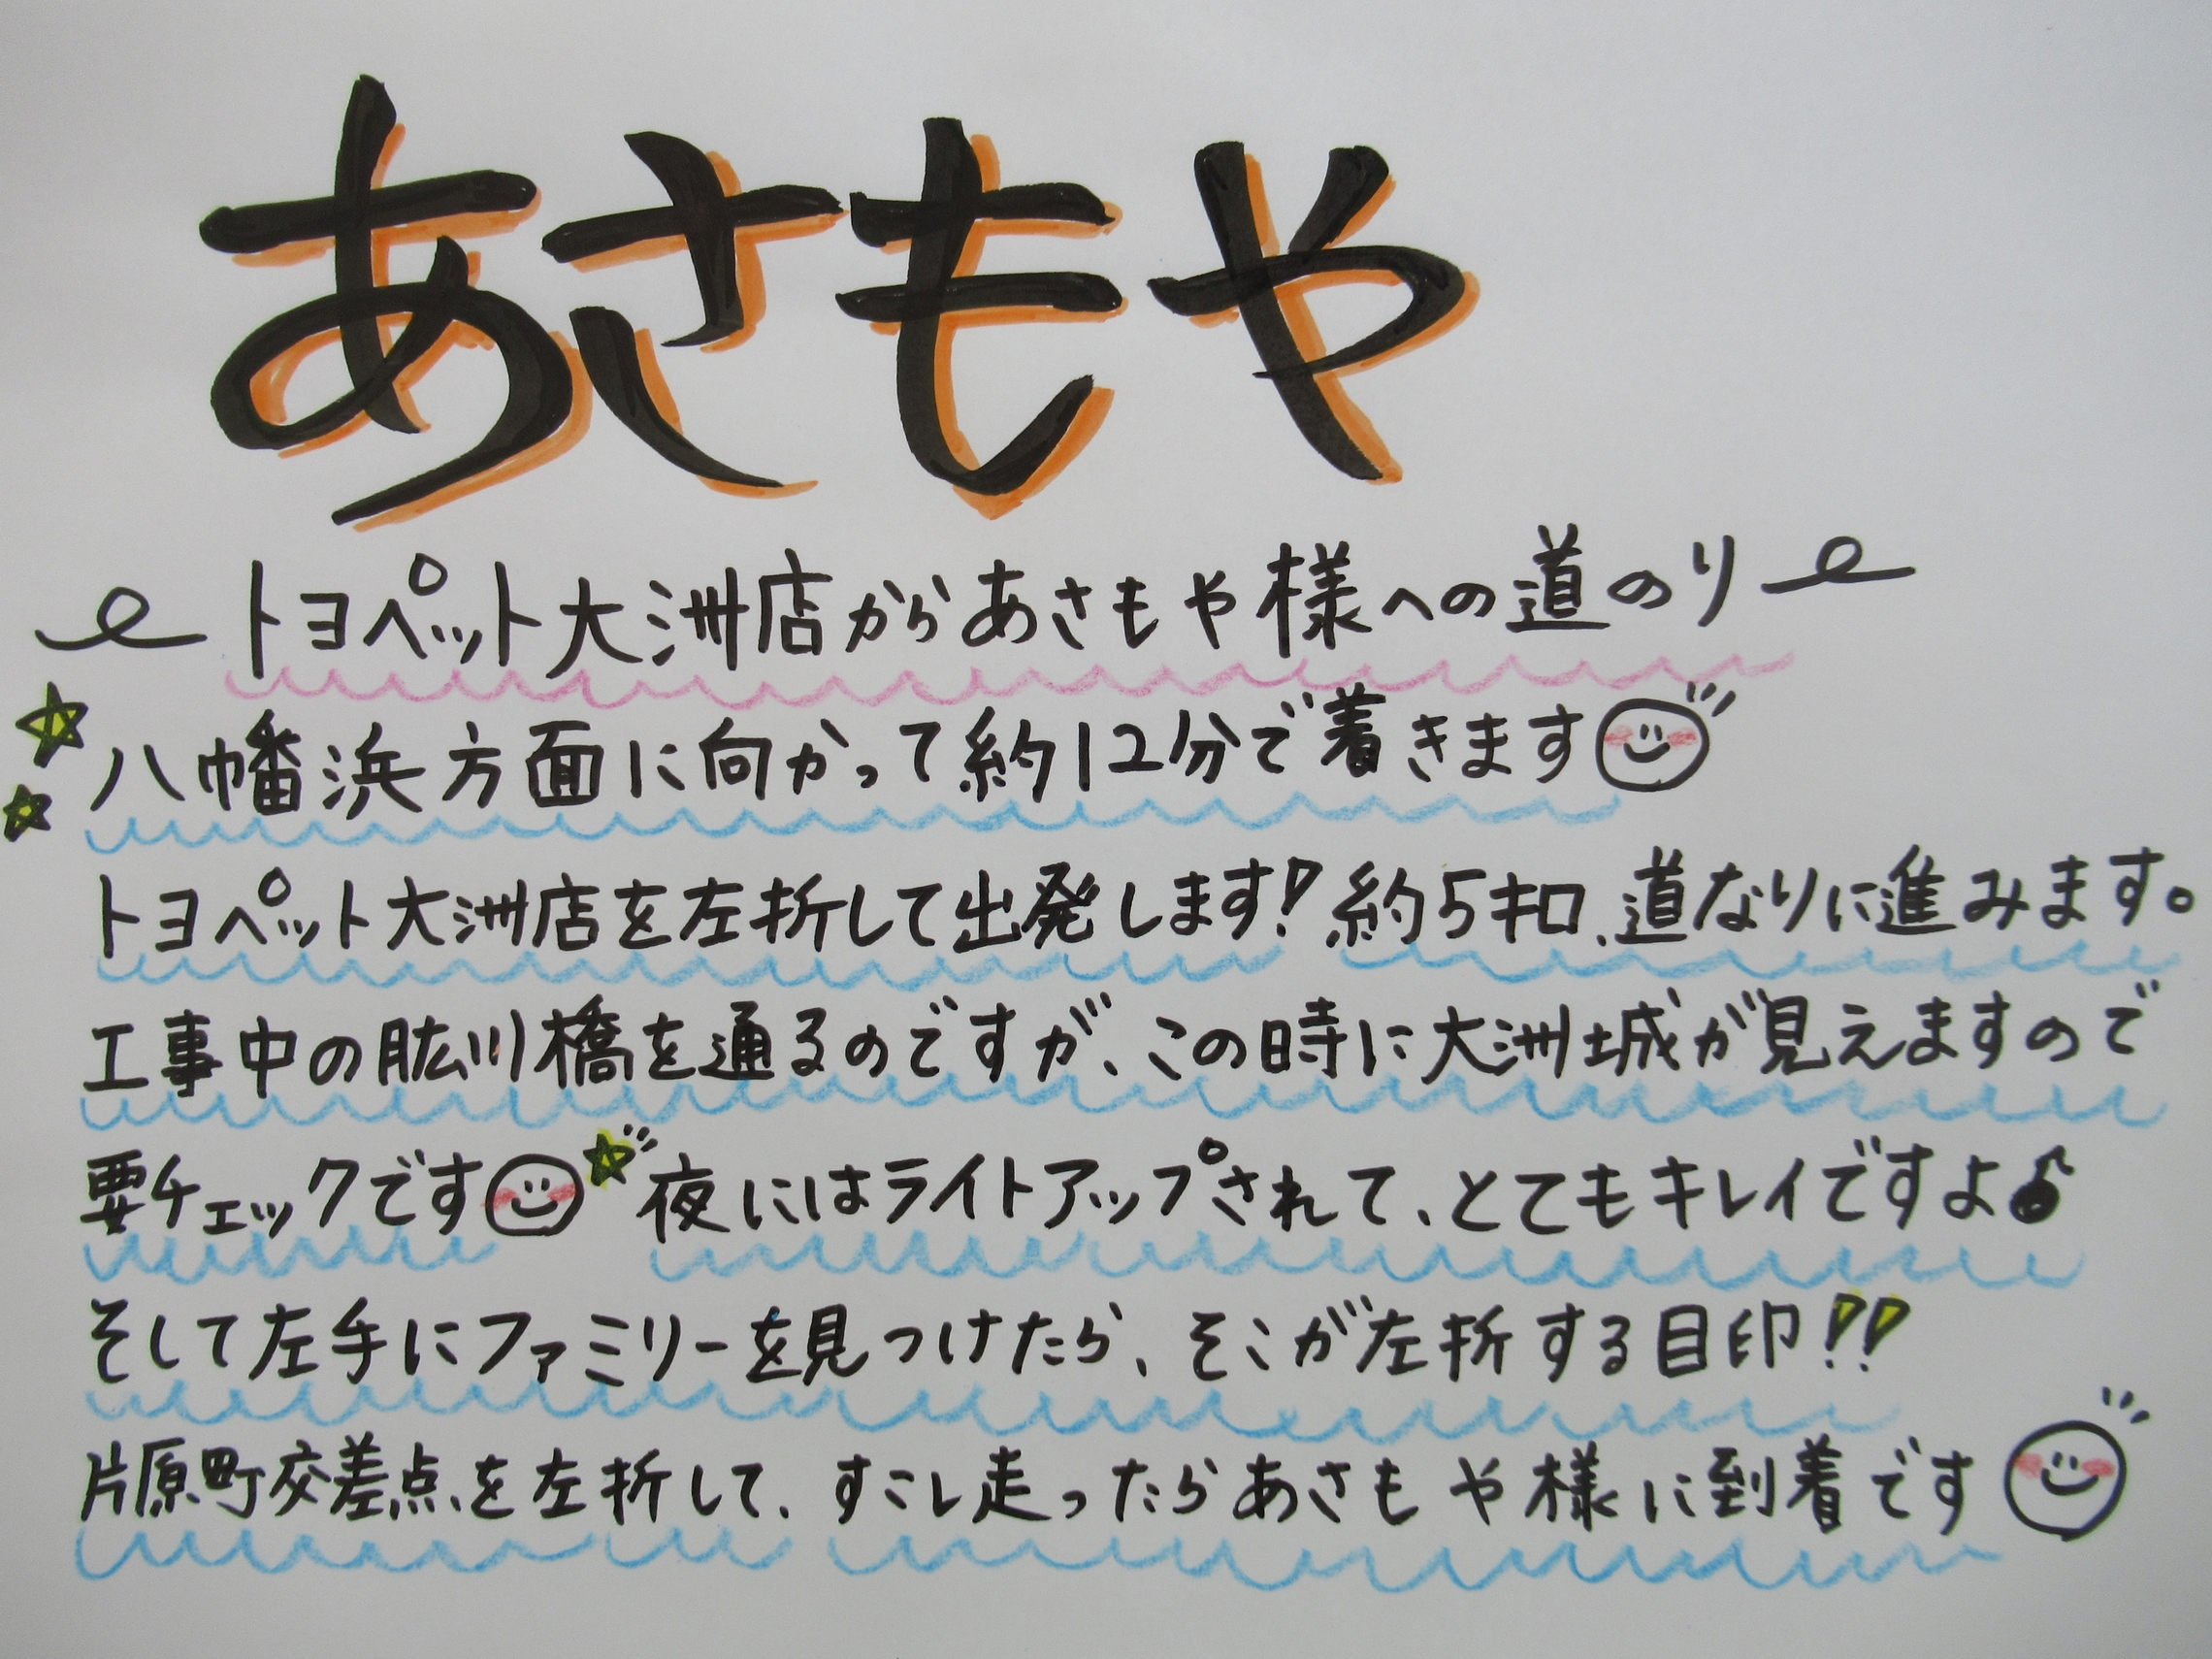 あさもや
トヨペット大洲店からあさもや様への道のり
八幡浜方面に向かって約12分で着きます
トヨペット大洲店を左折して出発します!約5キロ、道なりに進みます。
工事中の肱川橋を通るのですが、この時に大洲城が見えますので
要チェックです 夜にはライトアップされて、とてもキレイですよ♪
そして左手にファミリーを見つけたら、そこが左折する目印!!
片原町交差点を左折して、すこし走ったらあさもや様に到着です